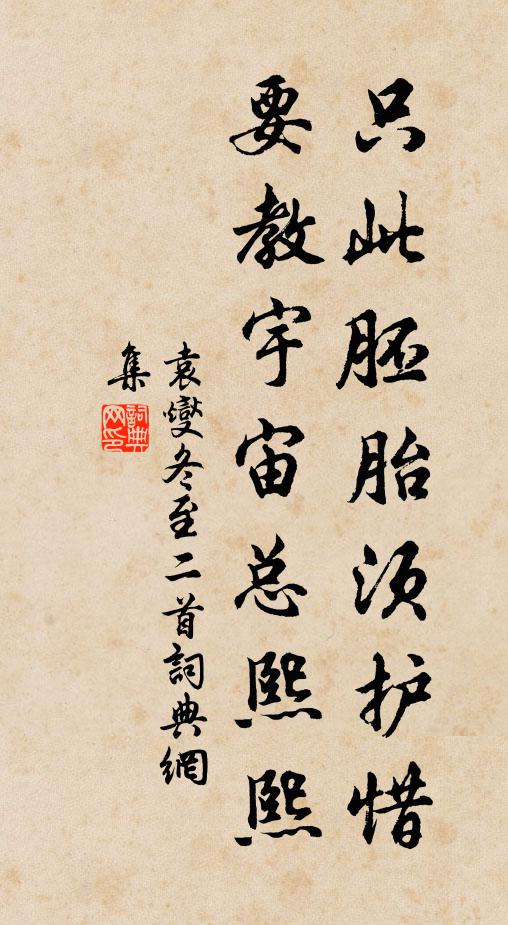 只此胚胎须护惜
要教宇宙总熙熙
袁燮冬至二首詞典網
集
詞典网印